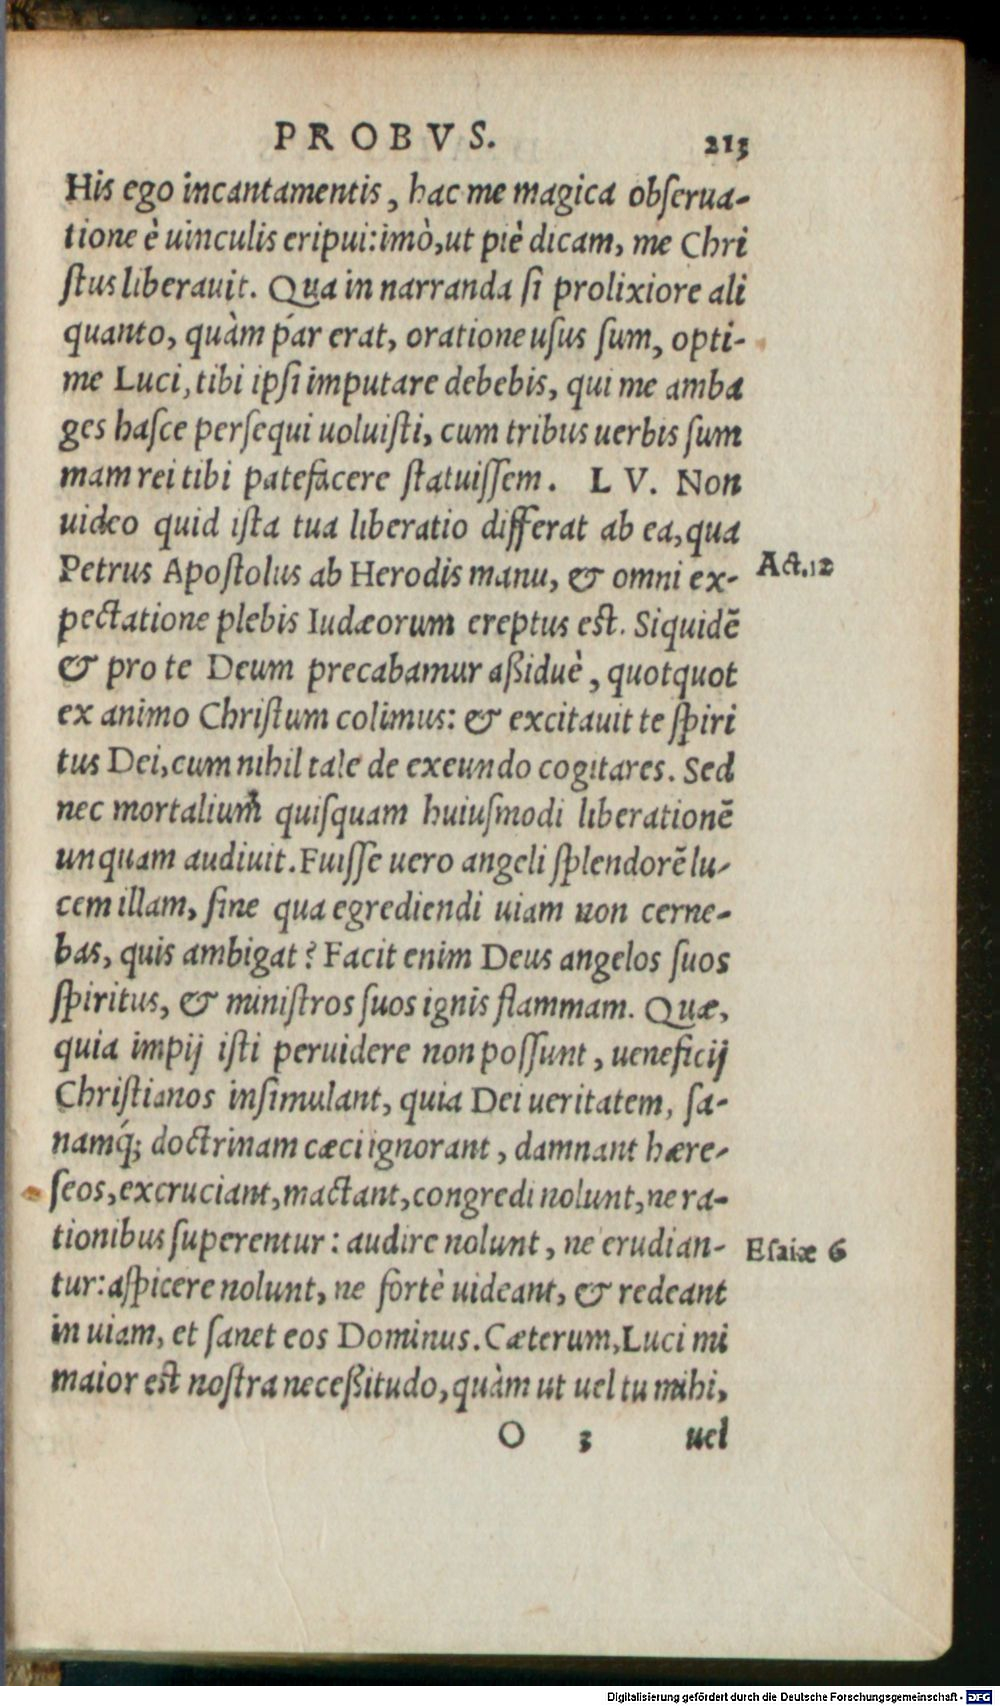 PROBVS. 213
His ego incantamentis, hac me magica obſerua-
tione è uinculis eripui: imò, ut piè dicam, me Chri
ſtus liberauit. Qua in narranda ſi prolixiore ali
quanto, quàm par erat, oratione uſus ſum, opti-
me Luci, tibi ipſi imputare debebis, qui me amba
ges haſce perſequi uoluiſti, cum tribus uerbis ſum
mam rei tibi patefacere ſtatuiſſem. L V. Non
uideo quid iſta tua liberatio differat ab ea, qua
Petrus Apoſtolus ab Herodis manu, & omni ex- Act.12
pectatione plebis Iudæorum ereptus eſt. Siquidē
& pro te Deum precabamur aßiduè, quotquot
ex animo Chriſtum colimus: & excitauit te ſpiri
tus Dei, cum nihil tale de exeundo cogitares. Sed
nec mortalium quiſquam huiuſmodi liberationē
unquam audiuit. Fuiſſe uero angeli ſplendorē lu-
cem illam, ſine qua egrediendi uiam non cerne-
bas, quis ambigat? Facit enim Deus angelos ſuos
ſpiritus, & miniſtros ſuos ignis flammam. Quæ,
quia impij iſti peruidere non poſſunt, ueneficij
Chriſtianos inſimulant, quia Dei ueritatem, ſa-
namq́; doctrinam cæci ignorant, damnant hære-
ſeos, excruciant, mactant, congredi nolunt, ne ra-
tionibus ſuperentur: audire nolunt, ne erudian- Eſaiæ 6
tur: aſpicere nolunt, ne fortè uideant, & redeant
in uiam, et ſanet eos Dominus. Cæterum, Luci mi
maior eſt noſtra neceßitudo, quàm ut uel tu mihi,
O 3 uel
Digitalisierung gefördert durch die Deutsche Forschungsgemeinschaft - DFG